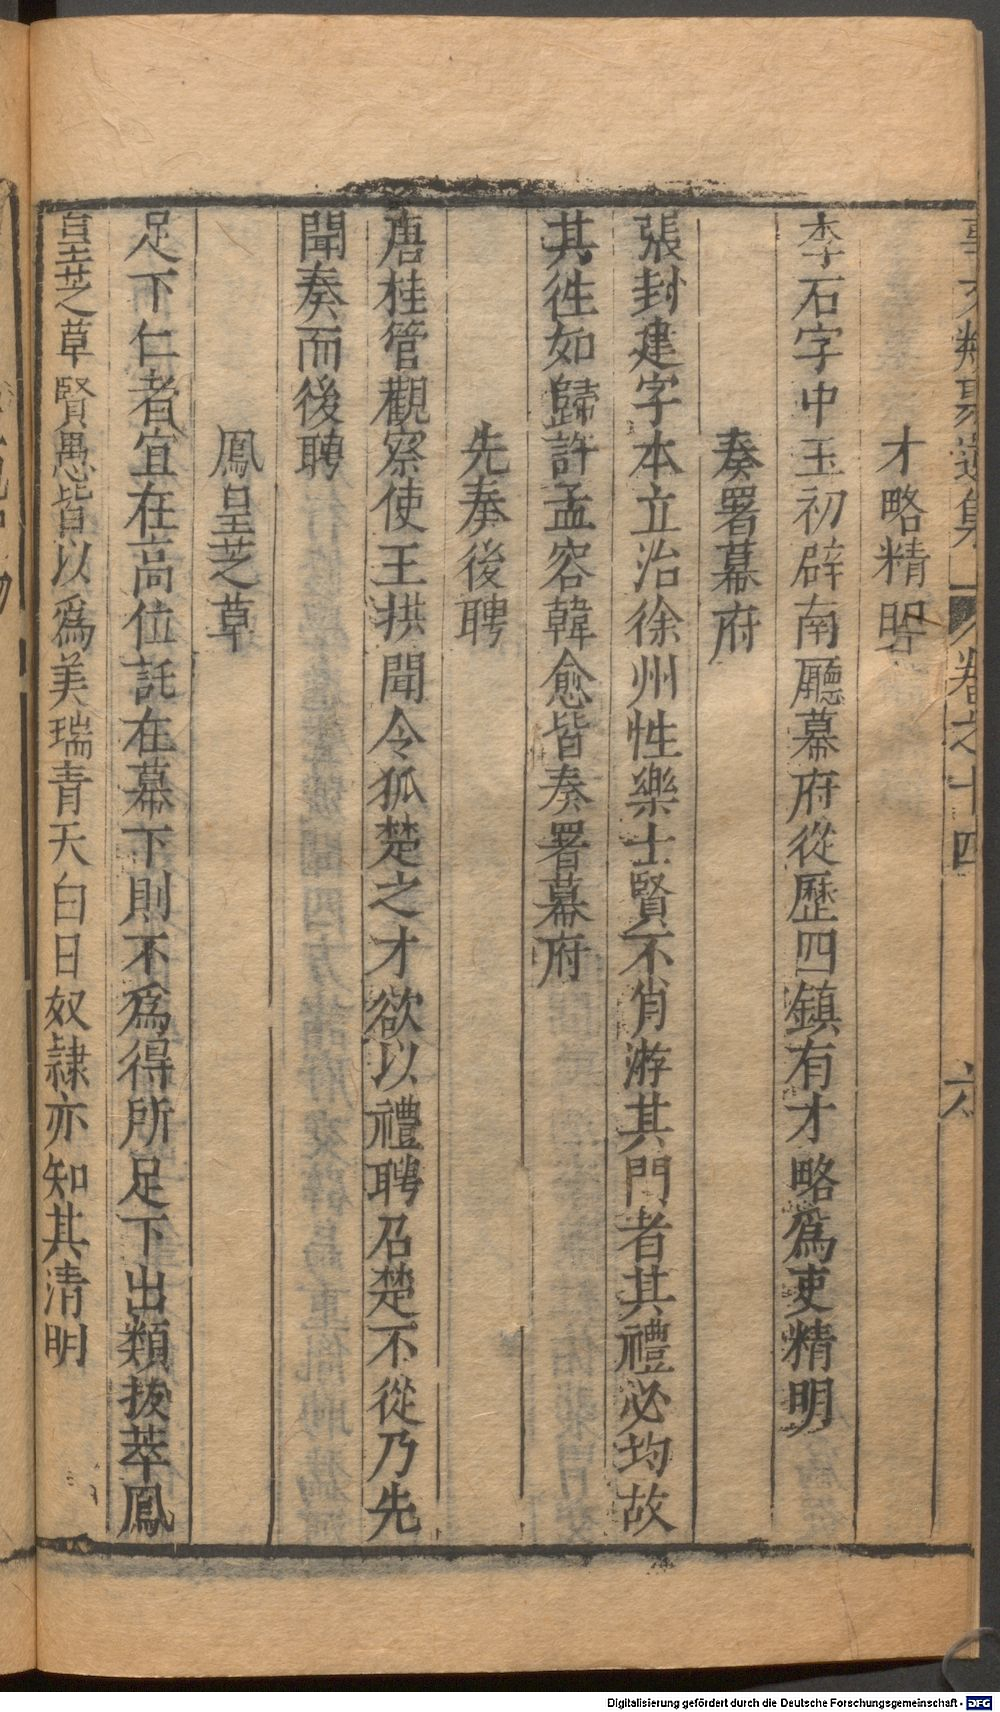 事文類聚遺集 卷之十四 六
才略精明
李石字中玉初辟南廳幕府從歷四鎮有才略爲吏精明
奏署幕府
張封建字本立治徐州性樂士賢不肖游其門者其禮必均故
其徃如歸許孟容韓愈皆奏署幕府
先奏後聘
唐桂管觀察使王拱聞令狐楚之才欲以禮聘召楚不從乃先
聞奏而後聘
鳳皇芝草
足下仁者宜在高位託在幕下則不爲得所足下出類拔萃鳳
皇芝草賢愚皆以爲美瑞青天白日奴隷亦知其清明
Digitalisierung gefördert durch die Deutsche Forschungsgemeinschaft - DFG